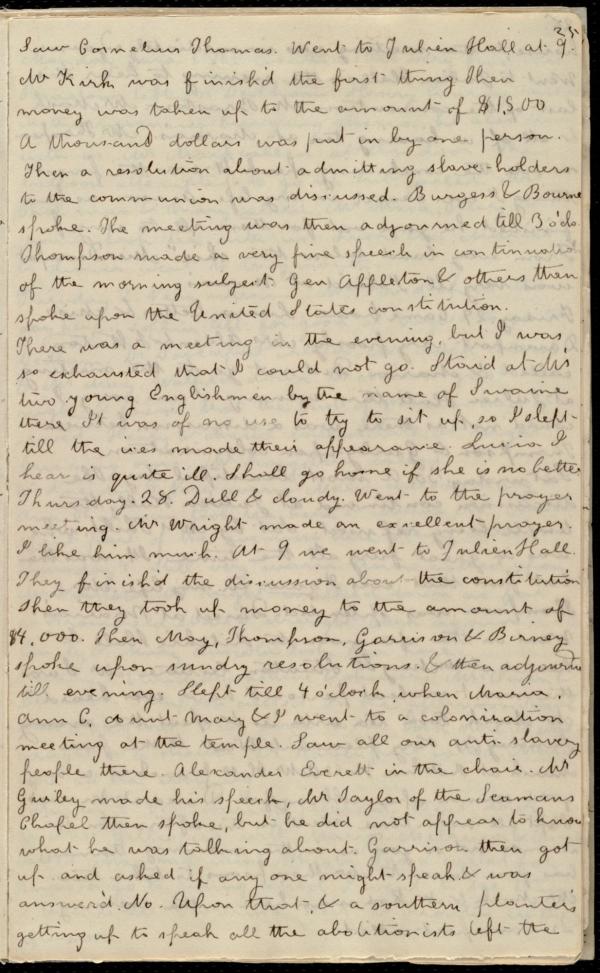 35
Saw Cornelius Thomas. Went to Julien Hall at 9.
Mr Kirk was finish'd the first thing Then
money was taken up to the amount of $1,500
A thousand dollars was put in by one person.
Then a resolution about admitting slave-holders
to the communion was discussed. Burgess & Bourne
spoke. The meeting was then adjourned till 3 o'clo.
Thompson made a very fine speech in continuation
of the morning subject. Gen Appleton & others then
spoke upon the United States constitution.
There was a meeting in the evening, but I was
so exhausted that I could not go. Staid at Mr's
two young Englishmen by the name of Swaine
there It was of no use to try to sit up, so I slept
till the ices made their appearance. Lucia I
hear is quite ill. Shall go home if she is no better
Thursday. 28. Dull & cloudy. Went to the prayer
meeting. Mr Wright made an excellent prayer.
I like him much. At 9 we went to Julien Hall.
They finish'd the discussion about the constitution
Then they took up money to the amount of
$4,000. Then May, Thompson, Garrison & Birney
spoke upon sundry resolutions. & then adjourn'd
till evening. Slept till 4 o'clock, when Maria,
Ann C, Aunt Mary & I went to a colonization
meeting at the temple. Saw all our anti-slavery
people there. Alexander Everett in the chair. Mr
Gurley made his speech, Mr Taylor of the Seamans
Chapel then spoke, but he did not appear to know
what he was talking about. Garrison then got
up and asked if any one might speak & was
answer'd. No. Upon that, & a southern planter's
getting up to speak all the abolitionists left the